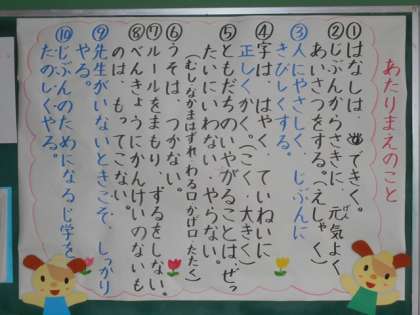 あたりまえのこと
①はなしは、目できく。
②じぶんからさきに、元気よく
あいさつをする。(えしゃく)
③人にやさしく、じぶんに
きびしくする。
④字は、はやく ていねいに
正しくかく。(こく、大きく)
⑤ともだちのいやがることは、ぜっ
たいにいわない、やらない。
(むし、なかまはずれ、わる口、かげ口、たたく)
⑥うそは、つかない。
⑦ルールをまもり、ずるをしない。
⑧べんきょうにかんけいのないも
のは、もってこない。
⑨先生がいないときこそ、しっかり
やる。
⑩じぶんのためになるじ学を
たのしくやる。